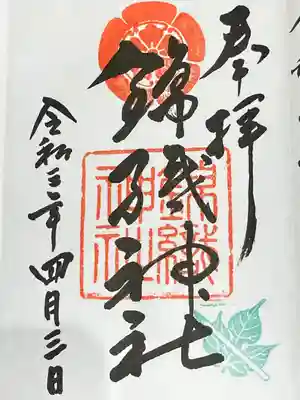 奉拝
錦織神社
錦織神社
令和三年四月三日